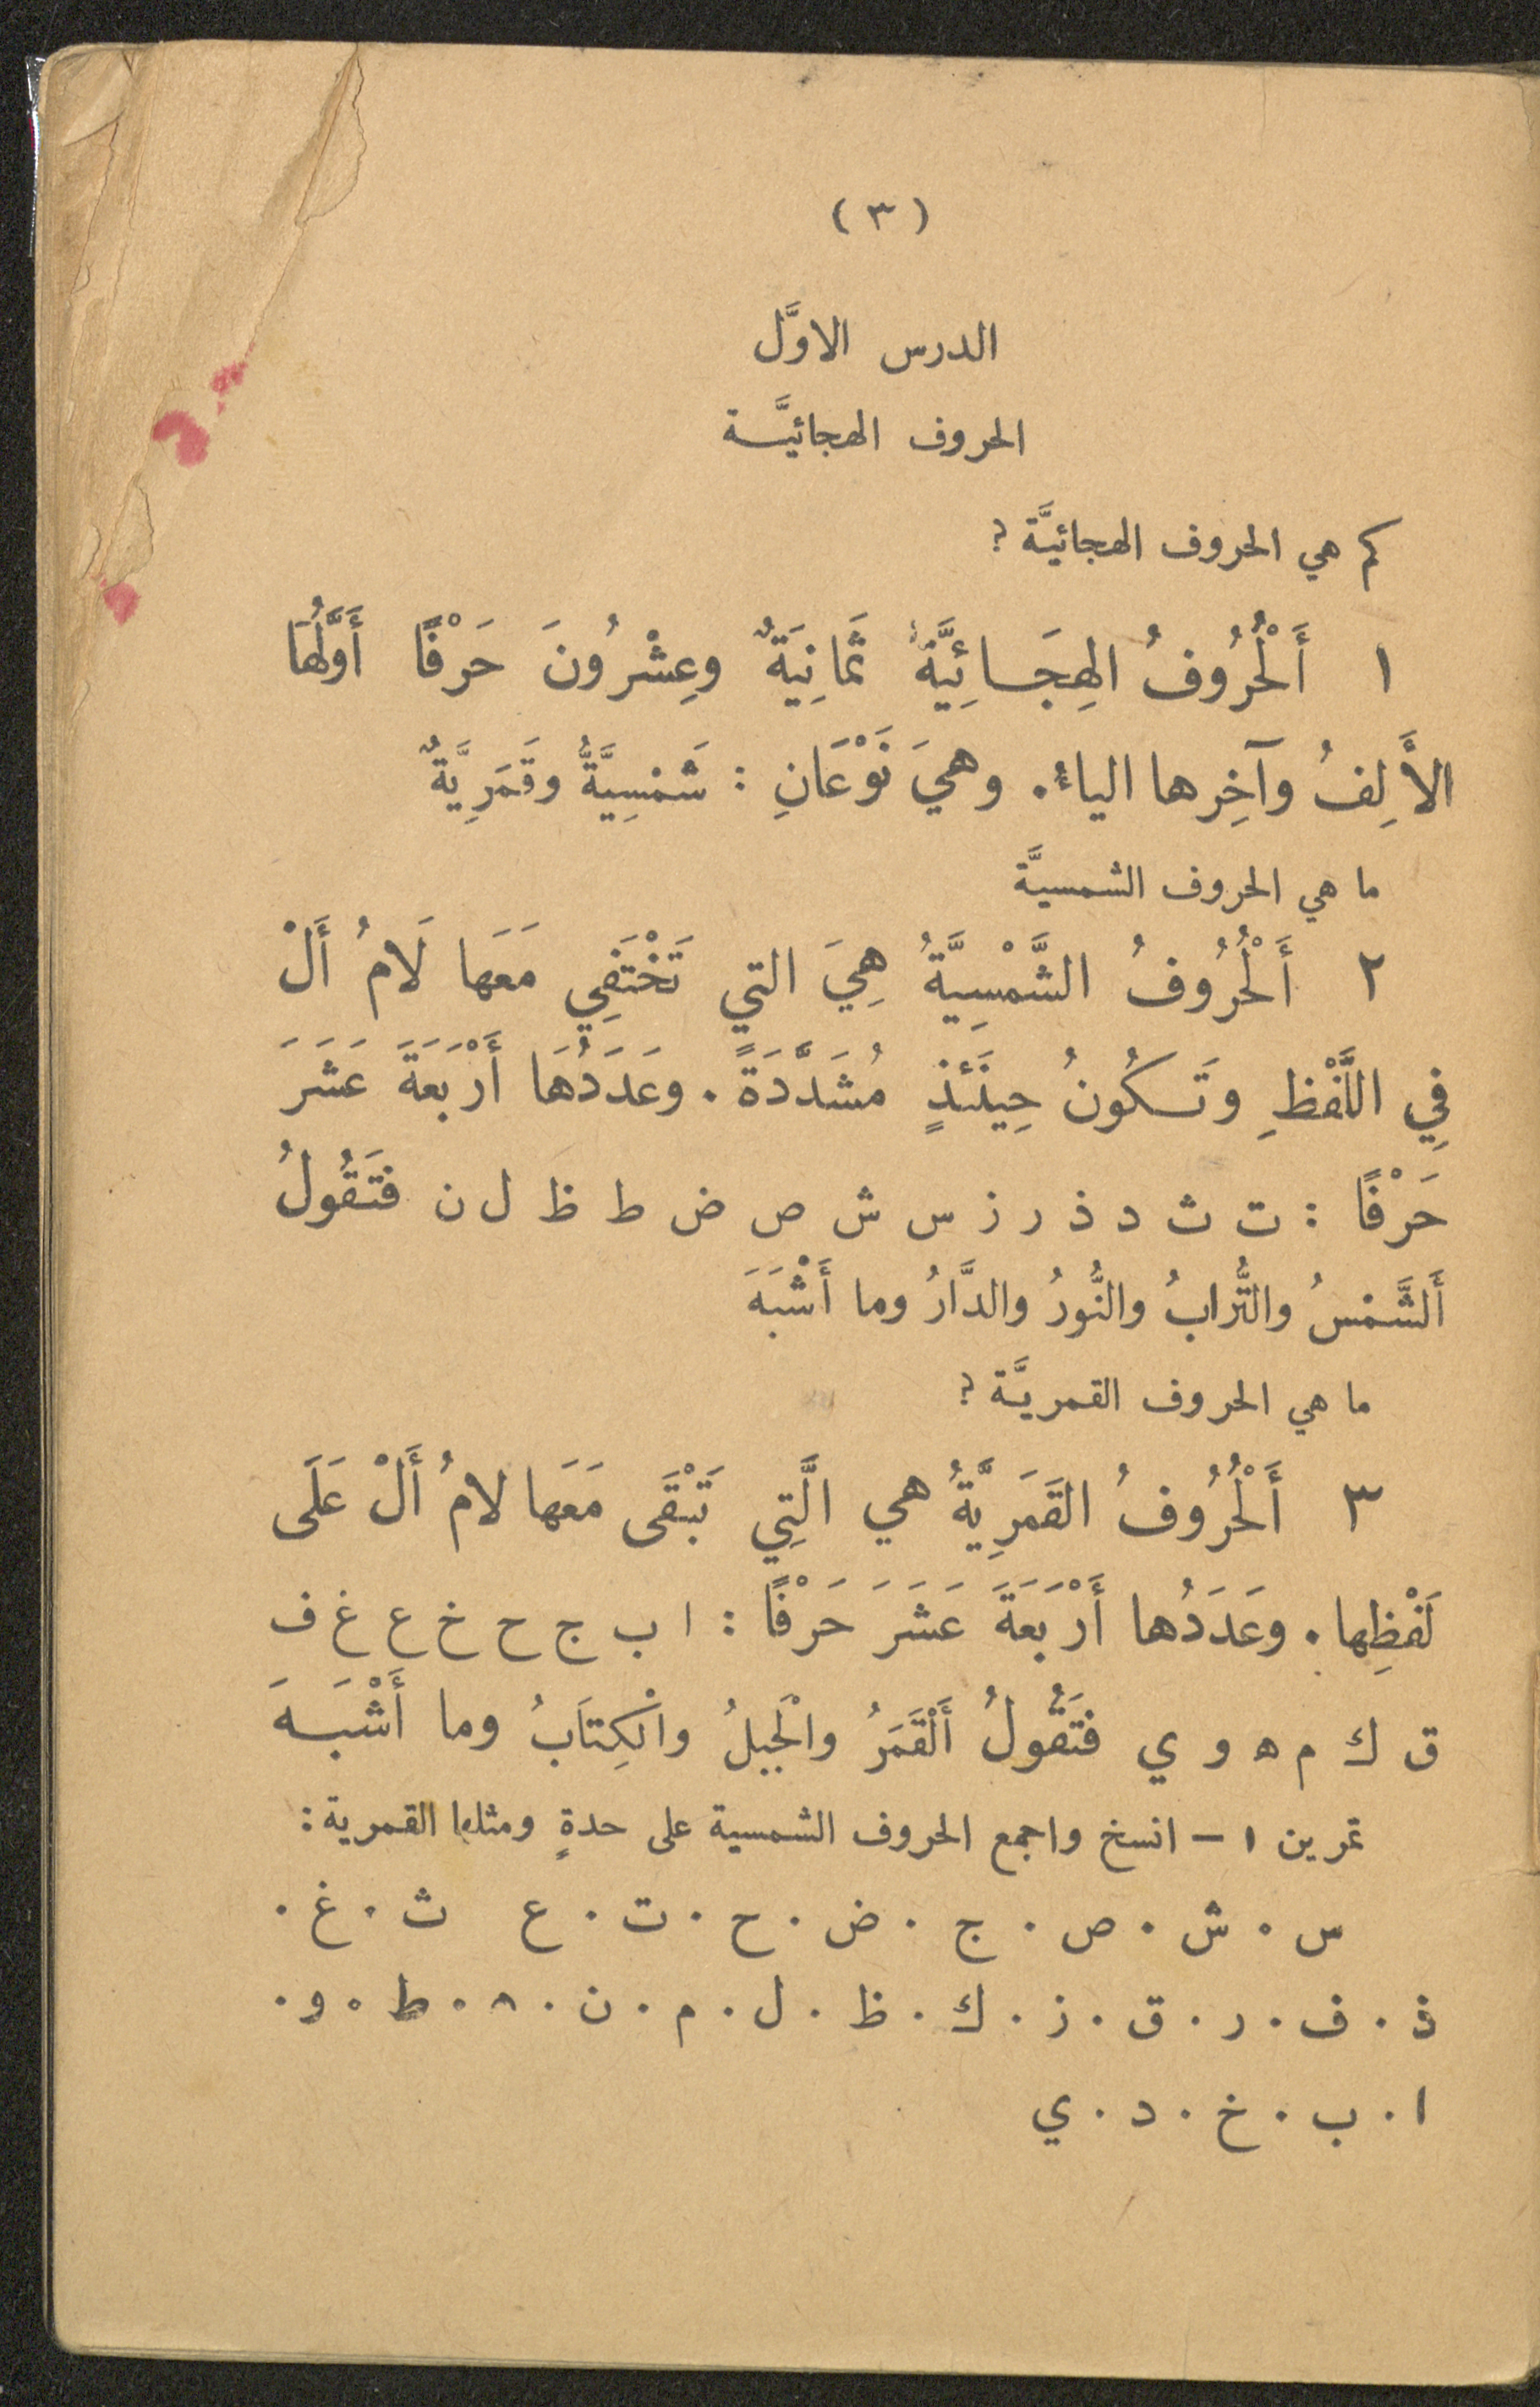 (٣)
الدرس الاوَّل
الحروف الهجائيَّة
كم هي الحروف الهجائيَّة؟
١ أَلْحُرُوفُ الهِجَائِيَّةُ ثَمَانِيَةٌ وعِشْرُونَ حَرْفًا أَوَّلُهَا
الأَلِفُ وآخِرها الياءُ. وهيَ نَوْعَانِ: شَمْسِيَّةٌ وقَمَرِيَّةٌ
ما هي الحروف الشمسيَّة
٢ أَلْحُرُوفُ الشَّمْسِيَّةُ هِيَ التي تَخْتَفِي مَعَها لَامُ أَلْ
فِي اللَّفْظِ وتَكُونُ حِينَئذٍ مُشَدَّدَةً. وعَدَدُهَا أَرْبَعَةَ عَشَرَ
حَرْفًا: ت ث د ذ ر ز س ش ص ض ط ظ ل ن فتَقُولُ
أَلشَّمْسُ والتُّرابُ والنُّورُ والدَّارُ وما أَشْبَهَ
ما هي الحروف القمريَّة؟
٣ أَلْحُرُوفُ القَمَرِيَّةُ هي الَّتِي تَبْقَى مَعَها لامُ أَلْ عَلَى
لَفْظِها. وعَدَدُها أَرْبَعَةَ عَشَرَ حَرْفًا: ا ب ج ح خ ع غ ف
ق ك م ه و ي فتَقُولُ أَلْقَمَرُ والْجَبلُ والْكِتَابُ وما أَشْبَهَ
تمرين ١ – انسخ واجمع الحروف الشمسية على حدةٍ ومثلها القمرية:
س . ش . ص . ج . ض . ح . ت . ع ث . غ .
ذ . ف . ر . ق . ز . ك . ظ . ل . م . ن . ه . ط . و .
ا . ب . خ . د . ي